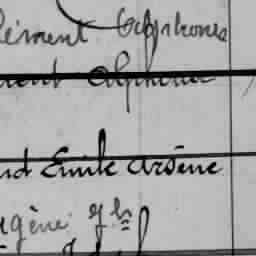 lément Alphonse
ent Alphonse
nd Emile Arsène
ugène Jh